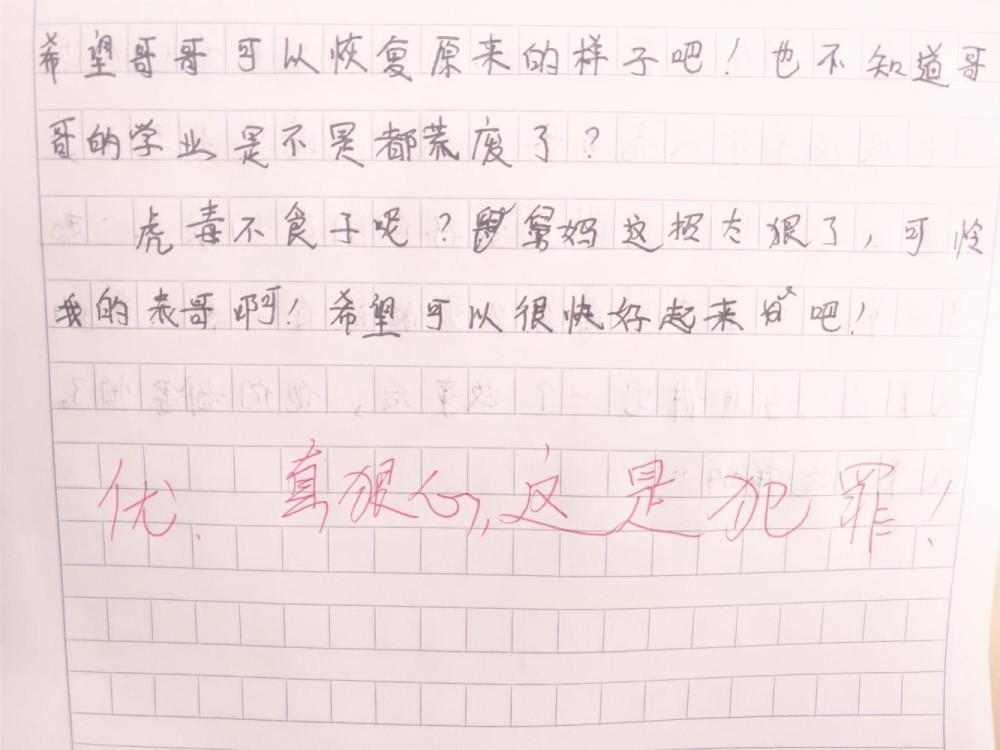 希望哥哥可以恢复原来的样子吧！也不知道哥
哥的学业是不是都荒废了？
虎毒不食子呢？舅妈这招太狠了，可怜
我的表哥啊！希望可以很快好起来吧！
优. 真狠心,这是犯罪！